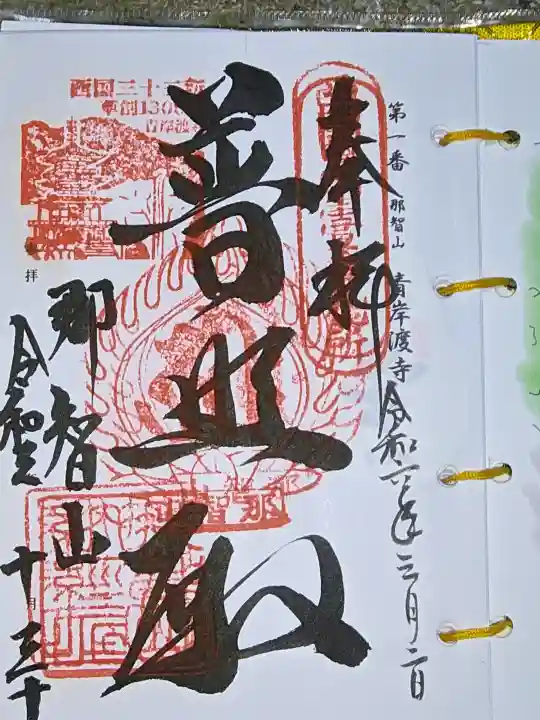 奉拝
第一番 那智山 青岸渡寺
令和六年三月二日
普照殿
西国三十三所
草創1300年
青岸渡寺
拝
那智山
令和元
十月三十
月
那智山